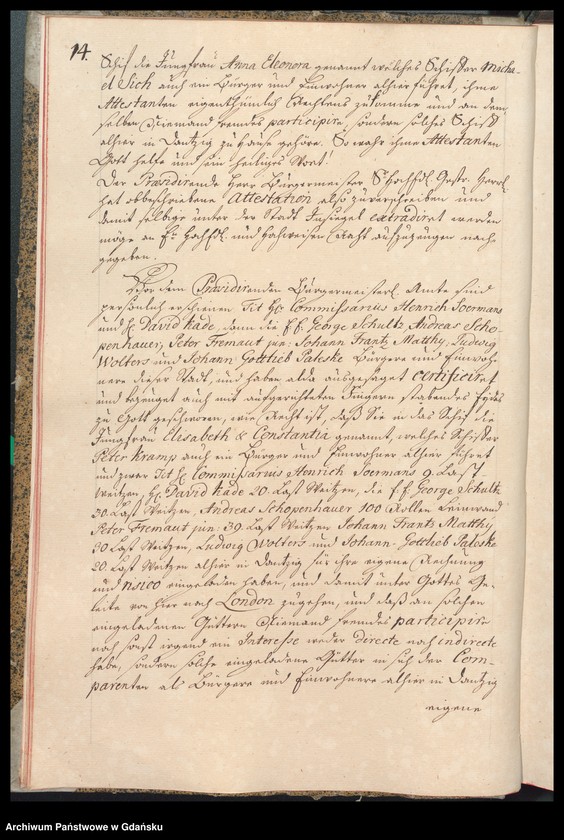 14.
Schif die Jungfrau Anna Eleonora genannt welches Schiffer Micha-
el Sich auch ein Bürger und Einwohner alhier führet, ihme
Attestanten eigenthümlich Rechtens zukomme und an dem
selben Niemand fremdes participire, sondern solches Schiff
alhier in Dantzig zu Hause gehöre. So wahr ihme Attestanten
Gott helfe und sein heiliges Wort!
Der Præsidirende Herr Bürgermeister
hat obbeschriebene Attestation also zuverschreiben und
damit selbige unter der Stadt Insiegel extradiret werden
möge an und Rath aufzugungen nach-
gegeben.
Vor dem Præsidirenden Bürgermeisterl. Amte sind
persönlich erschienen Tit H. Commissarius Henrich Soermans
und H. David Kade, dann die George Schultz, Andreas Scho-
penhauer, Peter Fremaut jun: Johann Frantz Matthy, Ludwig
Wolters und Johann Gottlieb Paleske Bürgere und Einwoh-
nere dieser Stadt, und haben alda ausgesaget certificiret
und bezeuget auch mit aufgerichteten Fingern stabendes Eydes
zu Gott geschworen, wie Recht ist, daß Sie in das Schif die
Jungfrau Elisabeth & Constantia genannt, welches Schiffer
Peter Kramp auch ein Bürger und Einwohner alhier führet
und zwar Tit H. Commissarius Henrich Soermans 9. Last
Weitzen, H. David Kade 20. Last Weitzen, die George Schultz
30. Last Weitzen, Andreas Schopenhauer 100 Rollen Leinwand
Peter Fremaut jun: 30. Last Weitzen Johann Frantz Matthy
30 Last Weitzen, Ludwig Wolters und Johann Gottlieb Paleske
20. Last Weitzen alhier in Dantzig für ihre eigene Rechnung
und risico eingeladen haben, und damit unter Gottes Ge-
leite von hier nach London zugehen, und daß an solchen
eingeladenen Güttern Niemand fremdes participire
noch sonst irgend ein Interesse weder directe noch indirecte
habe, sondern solche eingeladene Gütter in sich der Com-
parenten als Bürgere und Einwohnere alhier in Dantzig
eigene
Archiwum Państwowe w Gdańsku